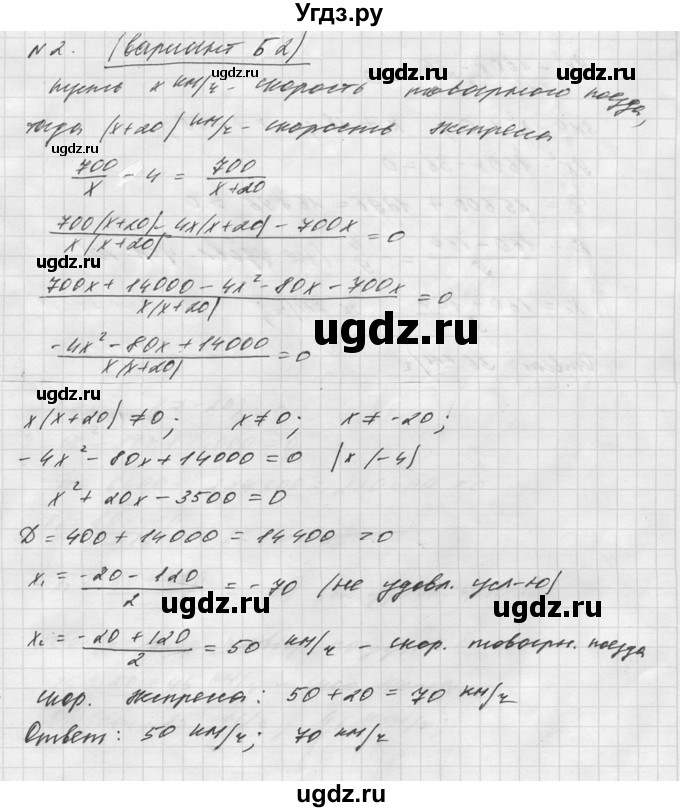 Угдз.ру
N 2. (вариант Б 2)
пусть x км/ч - скорость товарного поезда,
тогда (x+20) км/ч - скорость экспресса
700/x - 4 = 700/(x+20)
(700(x+20) - 4x(x+20) - 700x)/(x(x+20)) = 0
(700x + 14000 - 4x² - 80x - 700x)/(x(x+20)) = 0
(-4x² - 80x + 14000)/(x(x+20)) = 0
x(x+20) ≠ 0; x ≠ 0; x ≠ -20;
-4x² - 80x + 14000 = 0 |x(-4)
x² + 20x - 3500 = 0
D = 400 + 14000 = 14400 >0
x₁ = (-20 - 120)/2 = -70 (не удовл. усл-ю)
x₂ = (-20 + 120)/2 = 50 км/ч - скор. товарн. поезда
скор. экспресса: 50 + 20 = 70 км/ч
Ответ: 50 км/ч; 70 км/ч
ugdz.ru
ugdz.ru
ugdz.ru
ugdz.ru
ugdz.ru
ugdz.ru
ugdz.ru
ugdz.ru
ugdz.ru
ugdz.ru
ugdz.ru
ugdz.ru
ugdz.ru